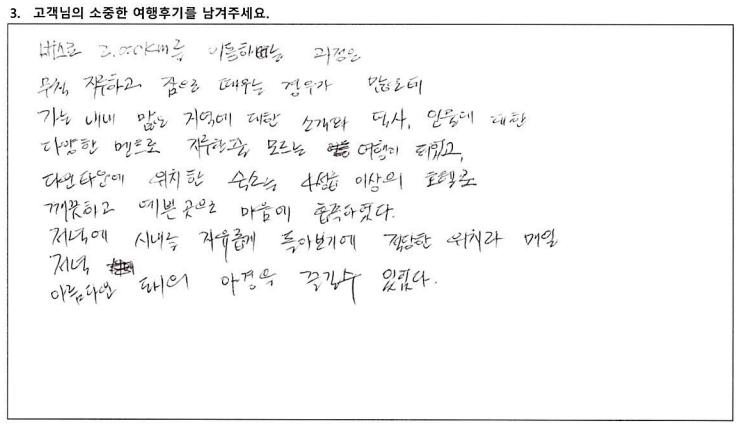 3. 고객님의 소중한 여행후기를 남겨주세요.
버스로 2,000km를 이동하는 과정은
무척 지루하고 잠으로 때우는 경우가 많은데
가는 내내 많은 지역에 대한 소개와 역사, 인물에 대한
다양한 멘트로 지루한줄 모르는 여행이 되었고,
다운타운에 위치한 숙소는 4성급 이상의 호텔로
깨끗하고 예쁜 곳으로 마음에 흡족하였다.
저녁에 시내를 자유롭게 돌아보기에 적당한 위치라 매일
저녁
아름다운 도시의 야경을 즐길수 있었다.